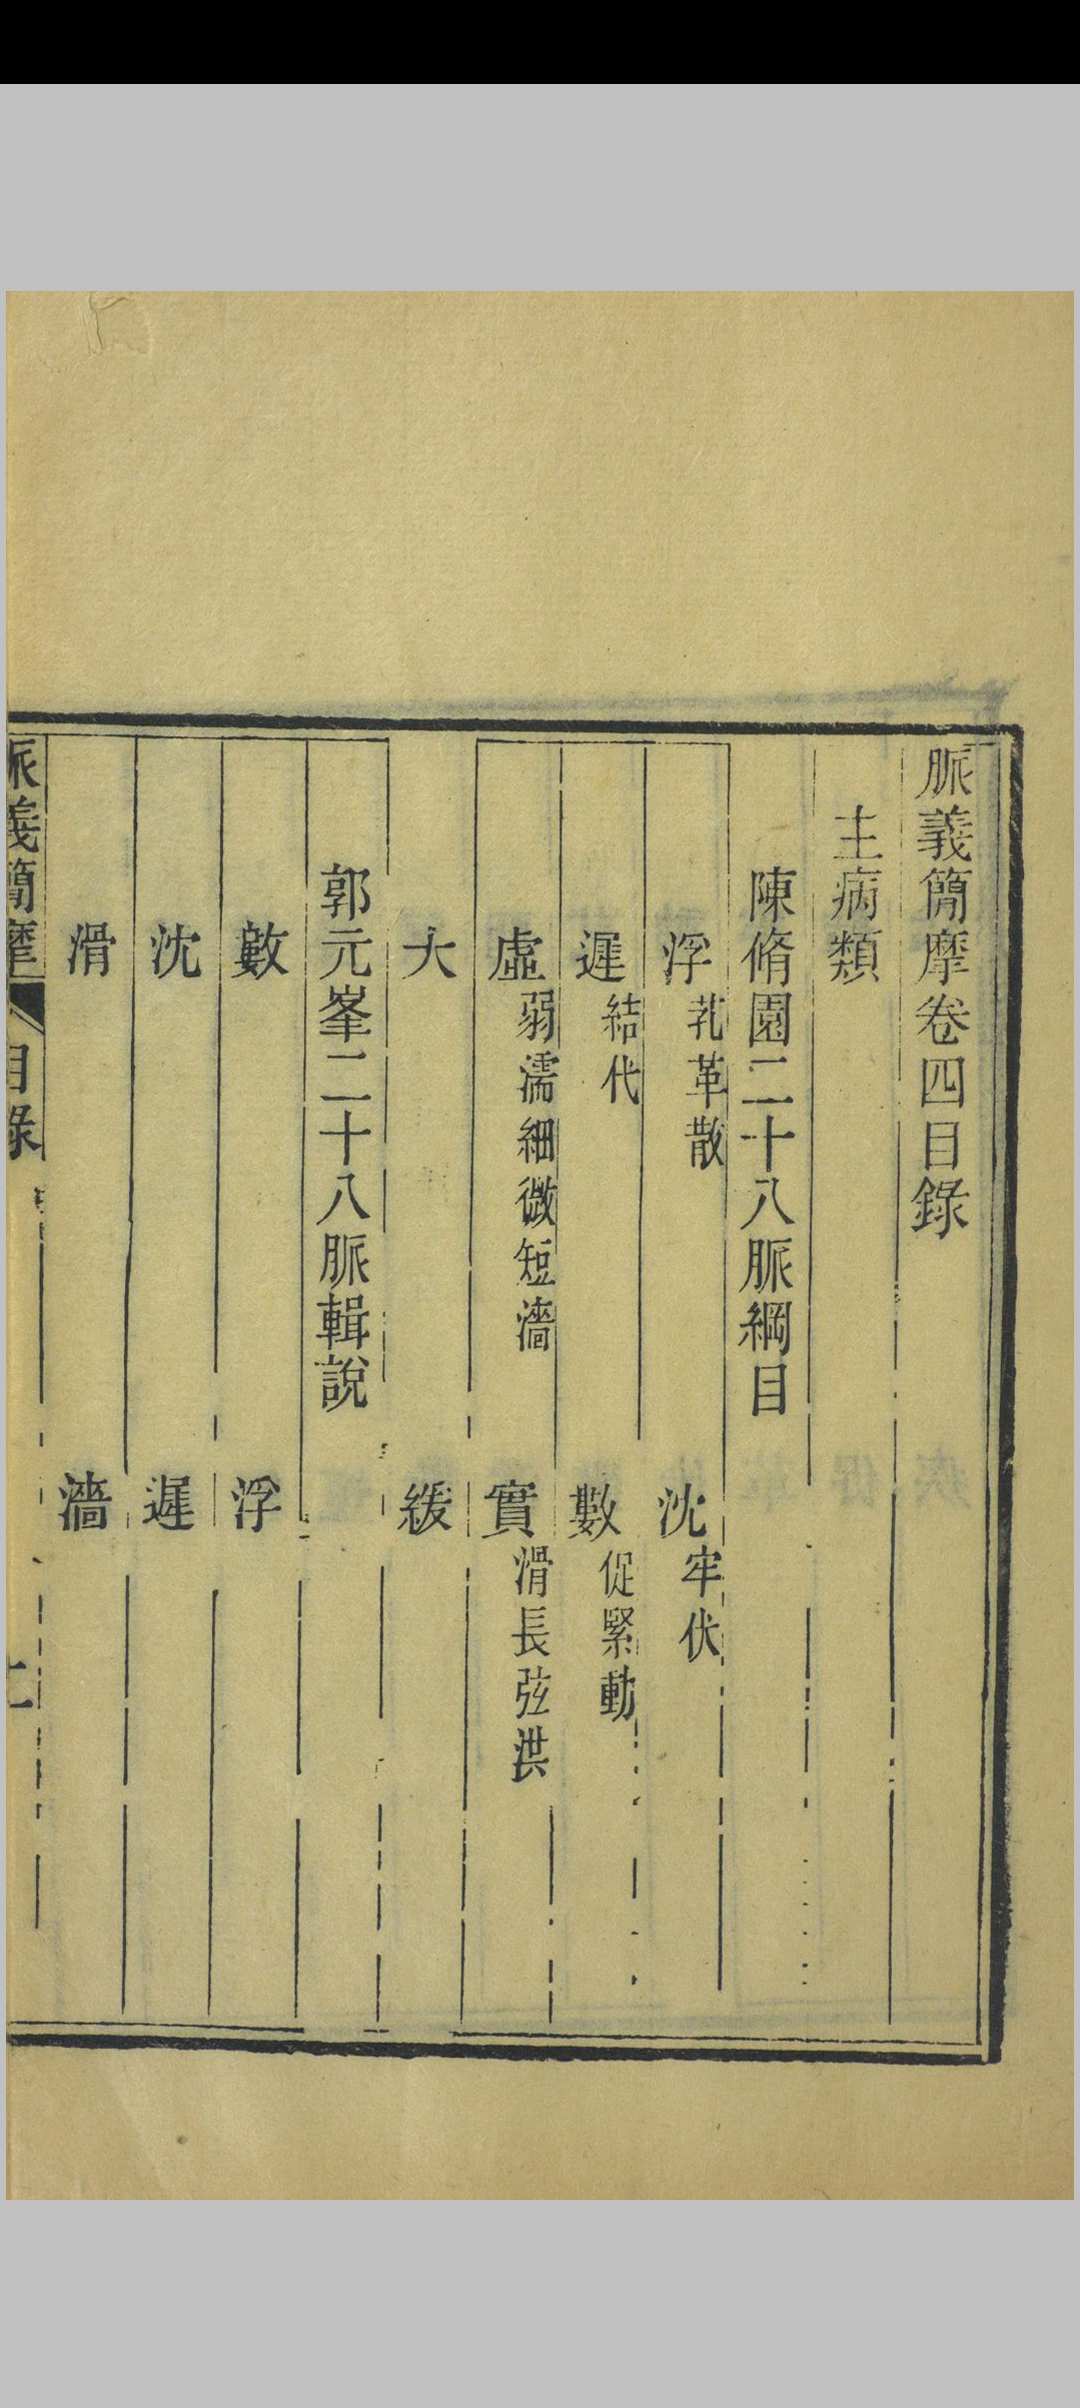 脈義簡摩卷四目錄
主病類
陳脩園二十八脈綱目
浮 芤革散 沈 牢伏
遲 結代 數 促緊動
虛 弱濡細微短濇 實 滑長弦洪
大 緩
郭元峯二十八脈輯說
數 浮
沈 遲
滑 濇
脈義簡摩 目錄